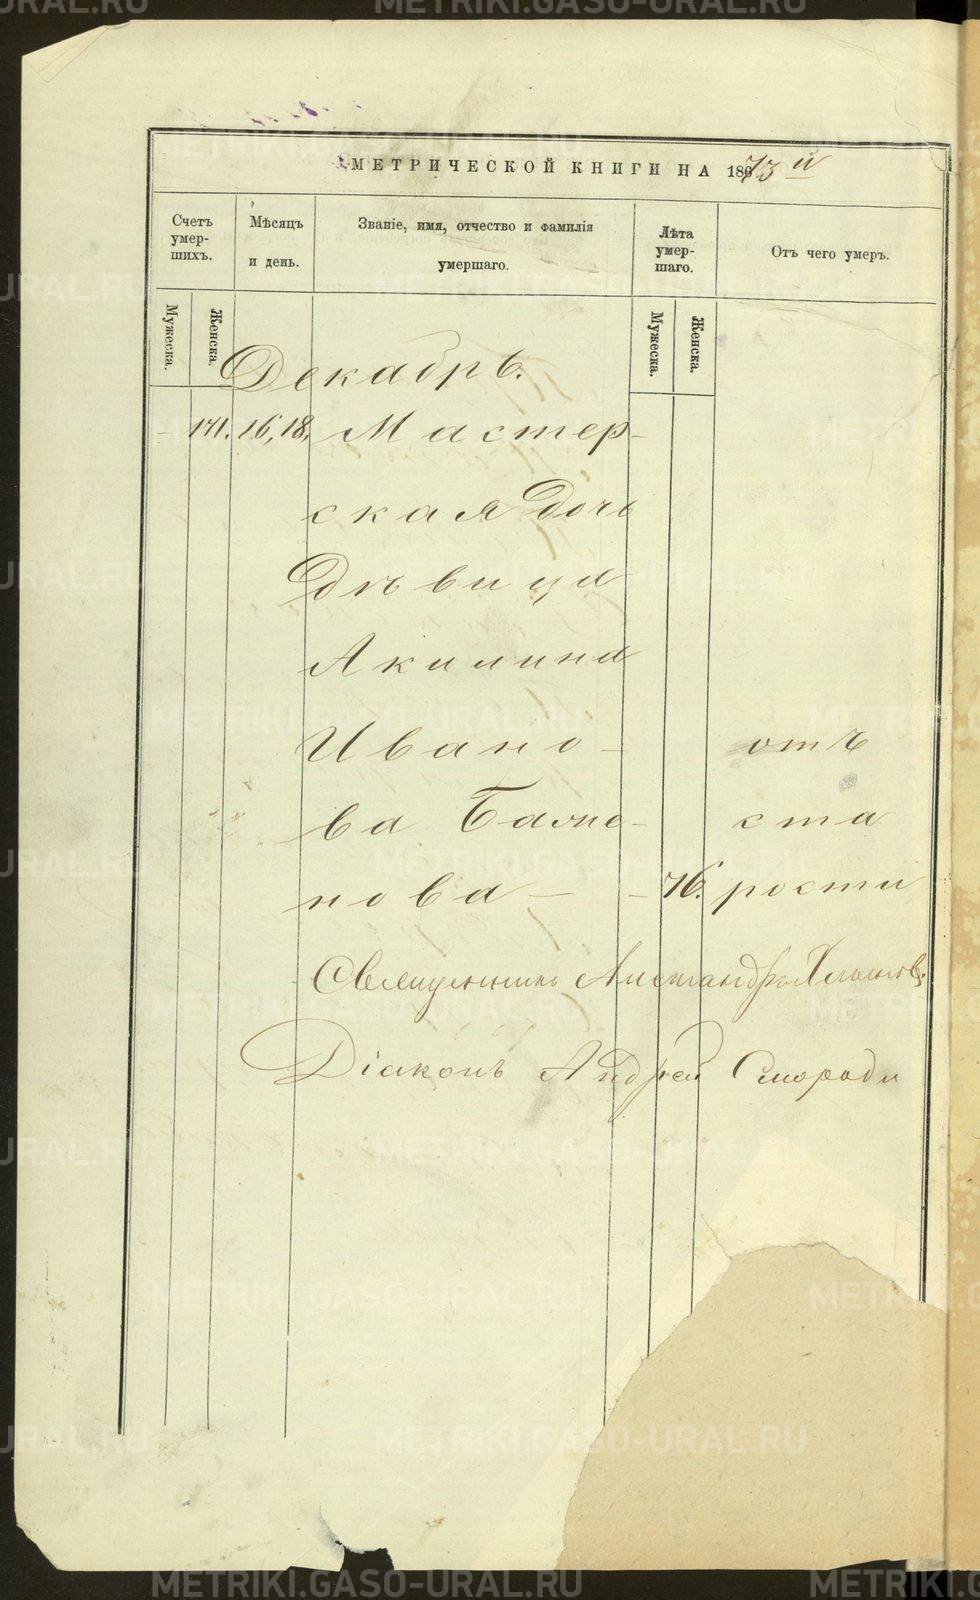 METRIKI.GASO-URAL.RU
МЕТРИЧЕСКОЙ КНИГИ НА 1873 й
Счетъ умер-шихъ.
Мѣсяцъ и день.
Званіе, имя, отчество и фамилія умершаго.
Лѣта умер-шаго.
Отъ чего умеръ.
Мужеска.
Женска.
Мужеска.
Женска.
Декабрь.
141. 16, 18. Мастер-
ская дочь
Дѣвица
Акилина
Ивано- отъ
ва Бажe- ста
нова 76. рости
Священникъ Александръ
Діаконъ Андрей Смороди